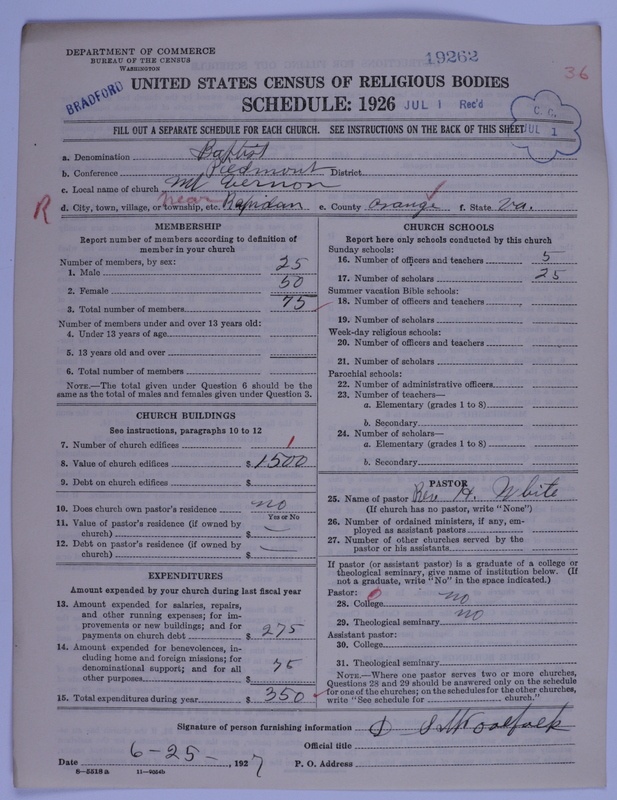 DEPARTMENT OF COMMERCE
BUREAU OF THE CENSUS
WASHINGTON
19262
36
BRADFORD
UNITED STATES CENSUS OF RELIGIOUS BODIES
SCHEDULE: 1926 JUL 1 Rec'd
C. C.
JUL 1
FILL OUT A SEPARATE SCHEDULE FOR EACH CHURCH. SEE INSTRUCTIONS ON THE BACK OF THIS SHEET
a. Denomination Baptist
b. Conference Piedmont District
c. Local name of church Mt Vernon
R
near
d. City, town, village, or township, etc. Rapidan e. County Orange f. State Va.
MEMBERSHIP
Report number of members according to definition of
member in your church
Number of members, by sex:
1. Male 25
2. Female 50
3. Total number of members 75
Number of members under and over 13 years old:
4. Under 13 years of age
5. 13 years old and over
6. Total number of members
NOTE.—The total given under Question 6 should be the
same as the total of males and females given under Question 3.
CHURCH BUILDINGS
See instructions, paragraphs 10 to 12
7. Number of church edifices 1
8. Value of church edifices $ 1500
9. Debt on church edifices $
10. Does church own pastor's residence no
Yes or No
11. Value of pastor's residence (if owned by
church) $
12. Debt on pastor's residence (if owned by
church) $
EXPENDITURES
Amount expended by your church during last fiscal year
13. Amount expended for salaries, repairs,
and other running expenses; for im-
provements or new buildings; and for
payments on church debt $ 275
14. Amount expended for benevolences, in-
cluding home and foreign missions; for
denominational support; and for all
other purposes $ 75
15. Total expenditures during year $ 350
CHURCH SCHOOLS
Report here only schools conducted by this church
Sunday schools:
16. Number of officers and teachers 5
17. Number of scholars 25
Summer vacation Bible schools:
18. Number of officers and teachers
19. Number of scholars
Week-day religious schools:
20. Number of officers and teachers
21. Number of scholars
Parochial schools:
22. Number of administrative officers
23. Number of teachers—
a. Elementary (grades 1 to 8)
b. Secondary
24. Number of scholars—
a. Elementary (grades 1 to 8)
b. Secondary
PASTOR
25. Name of pastor Rev. H. White
(If church has no pastor, write "None")
26. Number of ordained ministers, if any, em-
ployed as assistant pastors
27. Number of other churches served by the
pastor or his assistants
If pastor (or assistant pastor) is a graduate of a college or
theological seminary, give name of institution below. (If
not a graduate, write "No" in the space indicated.)
Pastor: 0
28. College no
29. Theological seminary no
Assistant pastor:
30. College
31. Theological seminary
NOTE.—Where one pastor serves two or more churches,
Questions 28 and 29 should be answered only on the schedule
for one of the churches; on the schedules for the other churches,
write "See schedule for church."
Signature of person furnishing information
Official title
Date 6-25-, 1927 P. O. Address
8-5518 a